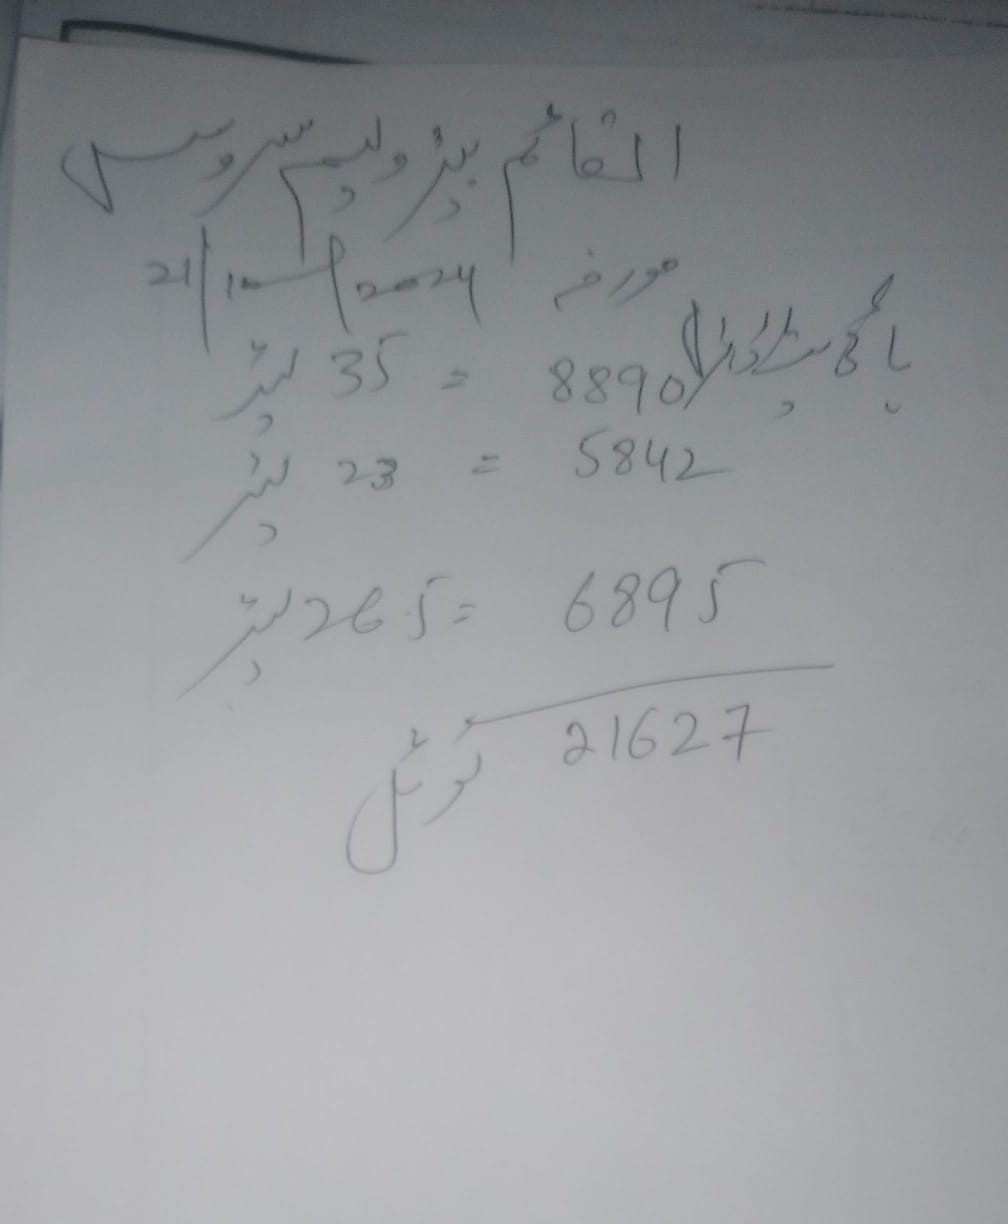 القائم پٹرولیم سروس
مورخہ 21/10/2024
8890 = 35 لیٹر
5842 = 23 لیٹر
6895 = 26.5 لیٹر
21627 ٹوٹل